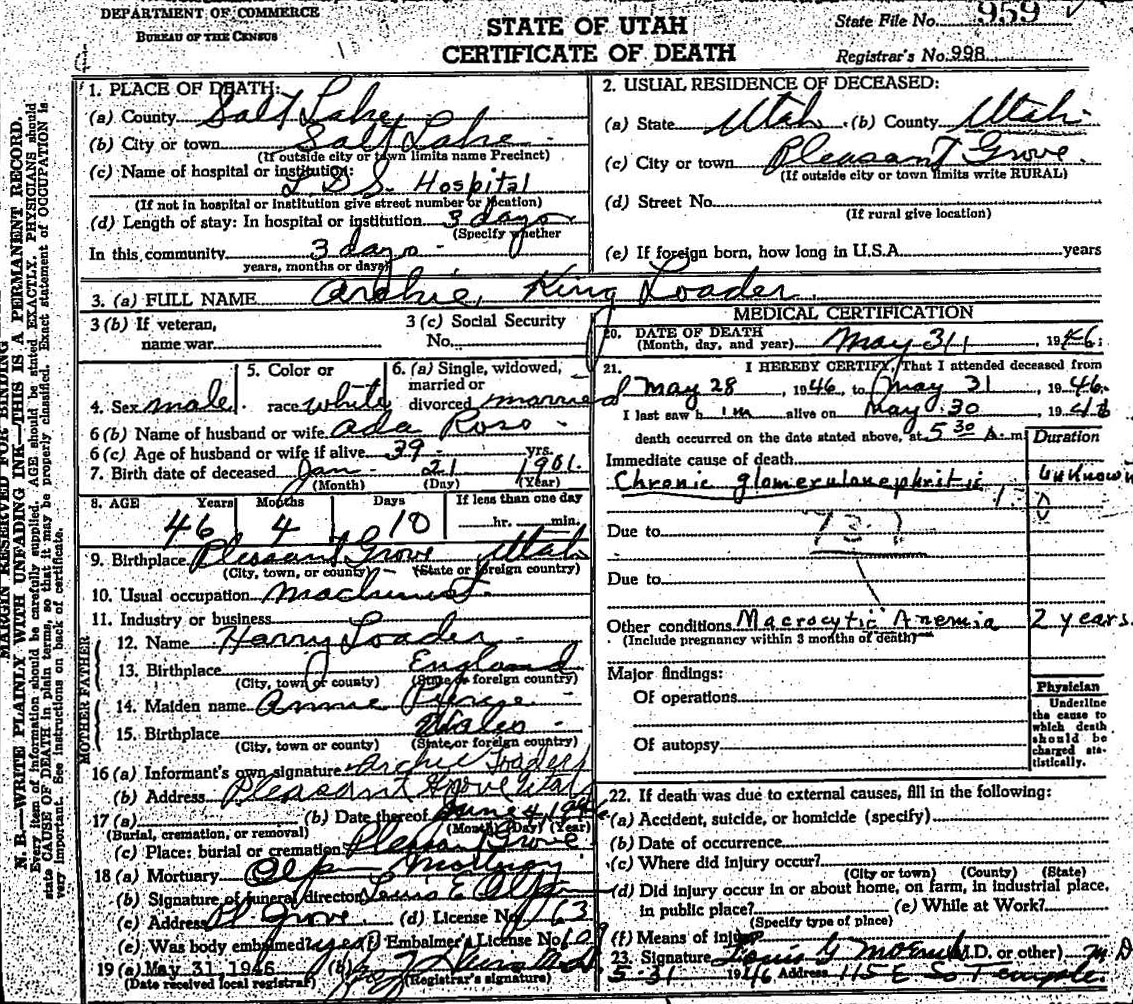 DEPARTMENT OF COMMERCE
BUREAU OF THE CENSUS
STATE OF UTAH
CERTIFICATE OF DEATH
State File No. 959
Registrar's No. 998
MARGIN RESERVED FOR BINDING
N. B.—WRITE PLAINLY WITH UNFADING INK—THIS IS A PERMANENT RECORD.
Every item of information should be carefully supplied. AGE should be stated EXACTLY. PHYSICIANS should
state CAUSE OF DEATH in plain terms, so that it may be properly classified. Exact statement of OCCUPATION is
very important. See instructions on back of certificate.
1. PLACE OF DEATH:
(a) County Salt Lake
(b) City or town Salt Lake
(If outside city or town limits name Precinct)
(c) Name of hospital or institution:
L.D.S. Hospital
(If not in hospital or institution give street number or location)
(d) Length of stay: In hospital or institution 3 days
(Specify whether
In this community 3 days
years, months or days)
2. USUAL RESIDENCE OF DECEASED:
(a) State Utah (b) County Utah
(c) City or town Pleasant Grove
(If outside city or town limits write RURAL)
(d) Street No.
(If rural give location)
(e) If foreign born, how long in U.S.A. years
3. (a) FULL NAME Archie King Loader
3 (b) If veteran,
name war
3 (c) Social Security
No.
4. Sex male
5. Color or
race white
6. (a) Single, widowed,
married or
divorced married
6 (b) Name of husband or wife Ada Ross
6 (c) Age of husband or wife if alive 39 yrs.
7. Birth date of deceased Jan 21 1901
(Month) (Day) (Year)
8. AGE Years Months Days If less than one day
46 4 10 hr. min.
9. Birthplace Pleasant Grove Utah
(City, town, or county) (State or foreign country)
10. Usual occupation Machinist
11. Industry or business
FATHER
12. Name Harry Loader
13. Birthplace England
(City, town or county) (State or foreign country)
MOTHER
14. Maiden name Annie
15. Birthplace Wales
(City, town or county) (State or foreign country)
16 (a) Informant's own signature Archie Loader
(b) Address Pleasant Grove Utah
17 (a) (b) Date thereof June 4, 1946
(Burial, cremation, or removal) (Month) (Day) (Year)
(c) Place: burial or cremation Pleasant Grove
18 (a) Mortuary Olpin Mortuary
(b) Signature of funeral director Louis E Olpin
(c) Address Pl Grove (d) License No. 163
(e) Was body embalmed? yes (f) Embalmer's License No.
19 (a) May 31, 1946 (b)
(Date received local registrar) (Registrar's signature)
MEDICAL CERTIFICATION
20. DATE OF DEATH
(Month, day, and year) May 31, 1946
21. I HEREBY CERTIFY, That I attended deceased from
May 28, 1946, to May 31, 1946
I last saw him alive on May 30 1946
death occurred on the date stated above, at 5 30 A. m.
Duration
Immediate cause of death
Chronic glomerulonephritis unknown
Due to
Due to
Other conditions Macrocytic Anemia 2 years
(Include pregnancy within 3 months of death)
Major findings:
Of operations
Of autopsy
Physician
Underline
the cause to
which death
should be
charged sta-
tistically.
22. If death was due to external causes, fill in the following:
(a) Accident, suicide, or homicide (specify)
(b) Date of occurrence
(c) Where did injury occur?
(City or town) (County) (State)
(d) Did injury occur in or about home, on farm, in industrial place,
in public place? (e) While at Work?
(Specify type of place)
(f) Means of injury
23. Signature Louis G Moench (M.D. or other) M D
5-31 1946 Address 115 E So Temple